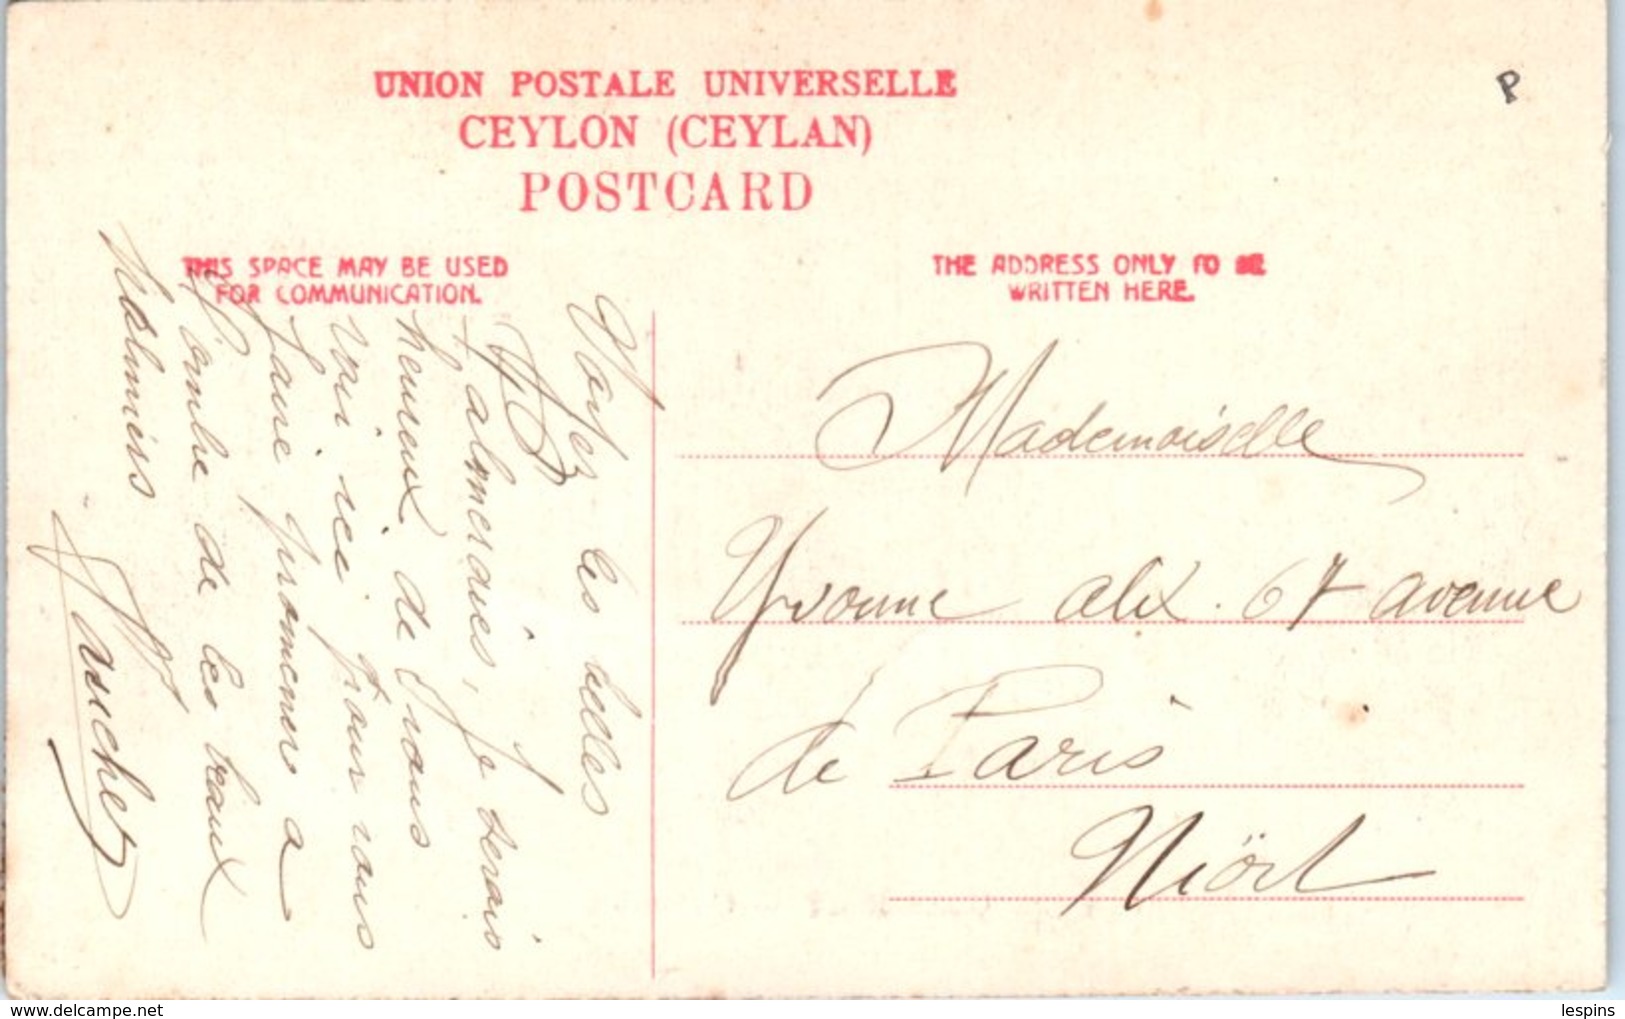 UNION POSTALE UNIVERSELLE
CEYLON (CEYLAN)
POSTCARD
P
THIS SPACE MAY BE USED
FOR COMMUNICATION.
THE ADDRESS ONLY TO BE
WRITTEN HERE.
Voyez les belles
palmeraies, je serais
heureux de vous
voir ici pour vous
faire promener a
l'ombre de les beaux
palmiers
Mademoiselle
Yvonne alix. 67 avenue
de Paris
Niört
delcampe.net
lespins